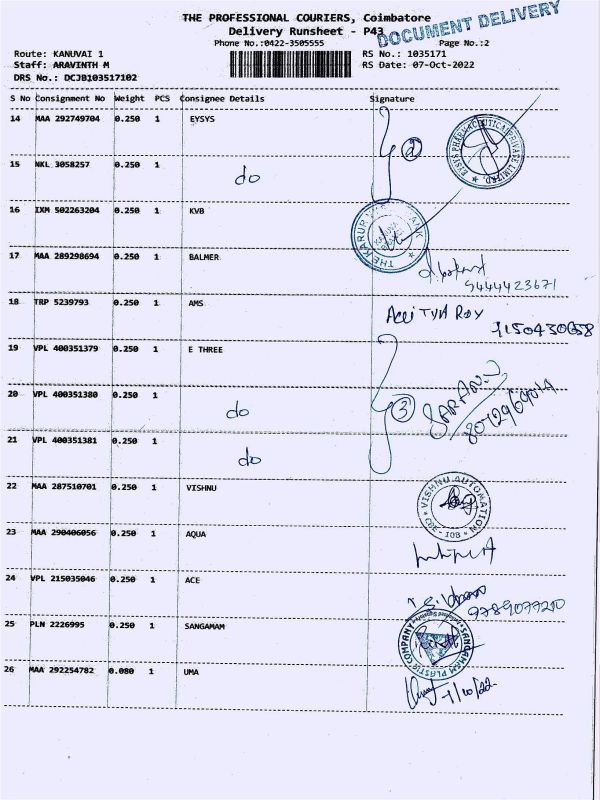 THE PROFESSIONAL COURIERS, Coimbatore
DOCUMENT DELIVERY
Delivery Runsheet - P43
Phone No.:0422-3505555 Page No.:2
Route: KANUVAI 1 RS No.: 1035171
Staff: ARAVINTH M RS Date: 07-Oct-2022
DRS No.: DCJB103517102
S No Consignment No Weight PCS Consignee Details Signature
14 MAA 292749704 0.250 1 EYSYS
2
EYSYS PHARMACEUTICAL PRIVATE LIMITED
15 NKL 3058257 0.250 1 do
16 IXM 502263204 0.250 1 KVB
THE KARUR VYSYA BANK
17 MAA 289298694 0.250 1 BALMER
9444423671
18 TRP 5239793 0.250 1 AMS
ROY
19 VPL 400351379 0.250 1 E THREE
20 VPL 400351380 0.250 1 do 3
21 VPL 400351381 0.250 1 do
22 MAA 287510701 0.250 1 VISHNU
VISHNU AUTOMATION
23 MAA 290406056 0.250 1 AQUA
24 VPL 215035046 0.250 1 ACE
9789077200
25 PLN 2226995 0.250 1 SANGAMAM
SANGAMAM PLASTIC COMPANY
26 MAA 292254782 0.080 1 UMA
7/10/22